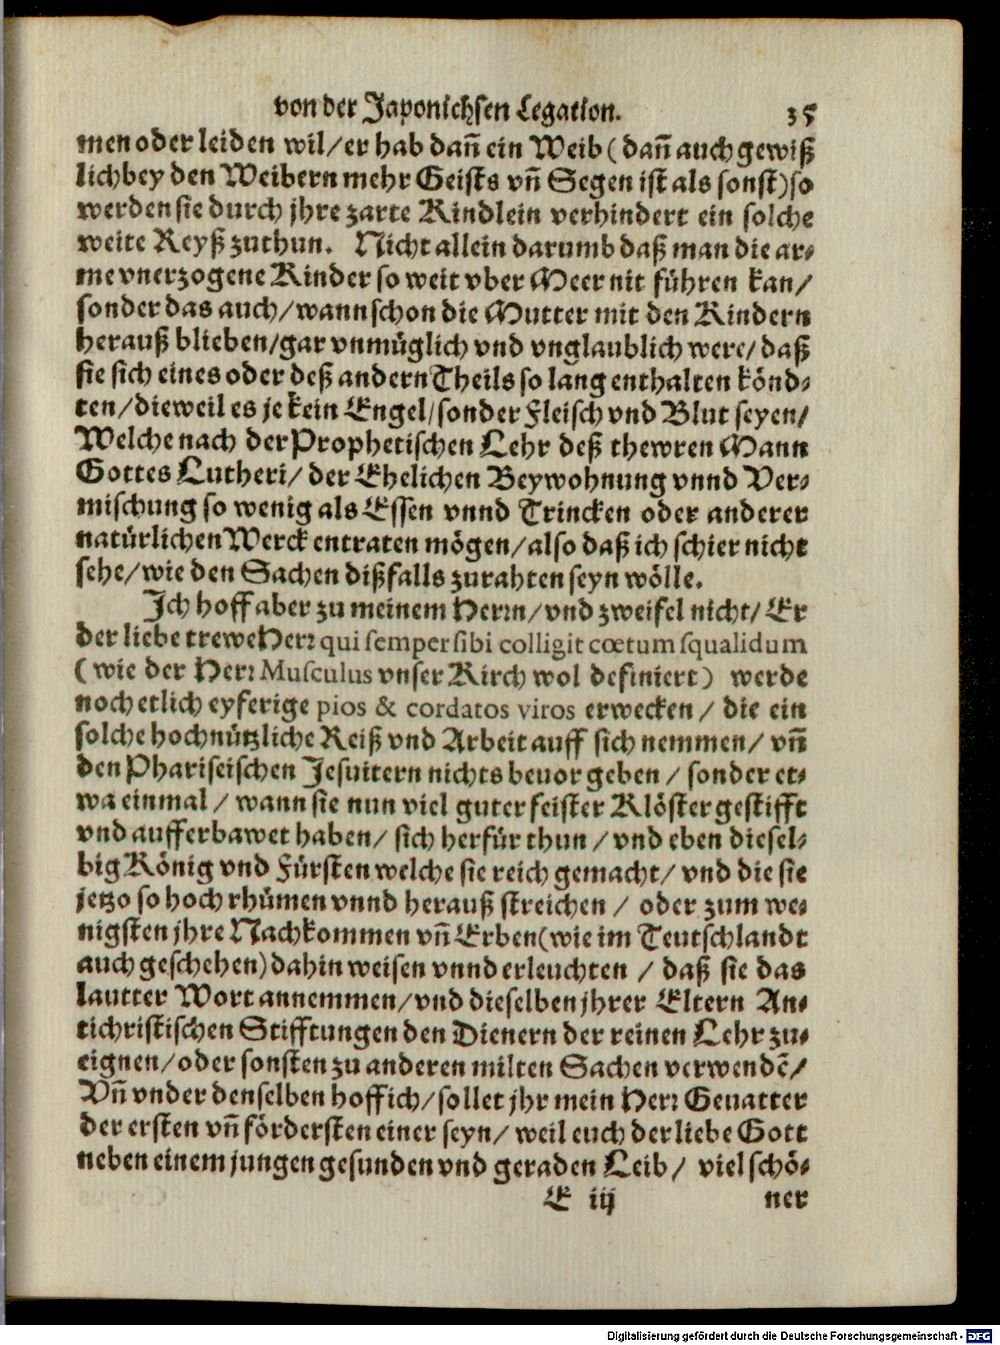 von der Japonichsen Legation. 35
men oder leiden wil/ er hab dañ ein Weib (dañ auch gewiß
lich bey den Weibern mehr Geists vñ Segen ist als sonst) so
werden sie durch jhre zarte Kindlein verhindert ein solche
weite Reyß zuthun. Nicht allein darumb daß man die ar-
me vnerzogene Kinder so weit vber Meer nit führen kan/
sonder das auch/ wann schon die Mutter mit den Kindern
herauß blieben/ gar vnmüglich vnd vnglaublich were/ daß
sie sich eines oder deß andern Theils so lang enthalten könd-
ten/ dieweil es je kein Engel/ sonder Fleisch vnd Blut seyen/
Welche nach der Prophetischen Lehr deß thewren Mann
Gottes Lutheri/ der Ehelichen Beywohnung vnnd Ver-
mischung so wenig als Essen vnnd Trincken oder anderer
natürlichen Werck entraten mögen/ also daß ich schier nicht
sehe/ wie den Sachen dißfalls zurahten seyn wölle.
Ich hoff aber zu meinem Herrn/ vnd zweifel nicht/ Er
der liebe trewe Herr qui semper sibi colligit cœtum squalidum
(wie der Herr Musculus vnser Kirch wol definiert) werde
noch etlich eyferige pios & cordatos viros erwecken/ die ein
solche hochnützliche Reiß vnd Arbeit auff sich nemmen/ vñ
den Phariseischen Jesuitern nichts beuor geben/ sonder et-
wa einmal/ wann sie nun viel guter feister Klöster gestifft
vnd aufferbawet haben/ sich herfür thun/ vnd eben diesel-
big König vnd Fürsten welche sie reich gemacht/ vnd die sie
jetzo so hoch rhümen vnnd herauß streichen/ oder zum we-
nigsten jhre Nachkommen vñ Erben (wie im Teutschlandt
auch geschehen) dahin weisen vnnd erleuchten/ daß sie das
lautter Wort annemmen/ vnd dieselben jhrer Eltern An-
tichristischen Stifftungen den Dienern der reinen Lehr zu-
eignen/ oder sonsten zu anderen milten Sachen verwendẽ/
Vñ vnder denselben hoff ich/ sollet jhr mein Herr Geuatter
der ersten vñ fördersten einer seyn/ weil euch der liebe Gott
neben einem jungen gesunden vnd geraden Leib/ viel schö-
E iij ner
Digitalisierung gefördert durch die Deutsche Forschungsgemeinschaft - DFG